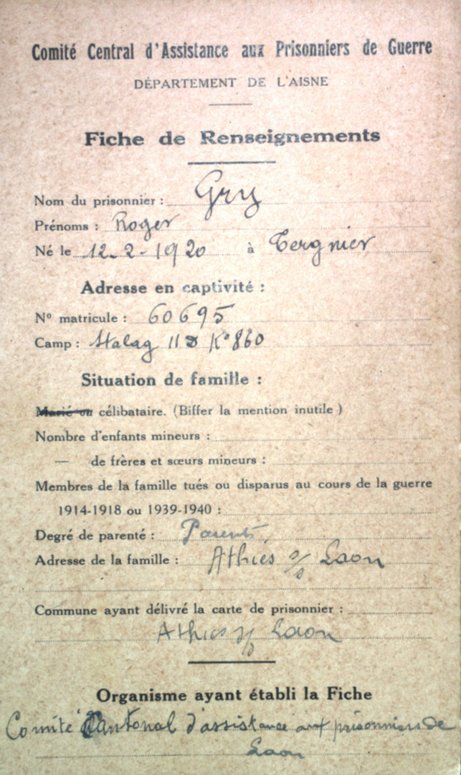 Comité Central d'Assistance aux Prisonniers de Guerre
DÉPARTEMENT DE L'AISNE
Fiche de Renseignements
Nom du prisonnier : Gry
Prénoms : Roger
Né le 12-2-1920 à Tergnier
Adresse en captivité :
N° matricule : 60695
Camp : Stalag II D K° 860
Situation de famille :
Marié ou célibataire. (Biffer la mention inutile)
Nombre d'enfants mineurs :
— de frères et sœurs mineurs :
Membres de la famille tués ou disparus au cours de la guerre
1914-1918 ou 1939-1940 :
Degré de parenté : Parents
Adresse de la famille : Athies s/s Laon
Commune ayant délivré la carte de prisonnier :
Athies s/s Laon
Organisme ayant établi la Fiche
Comité Cantonal d'assistance aux prisonniers de
Laon